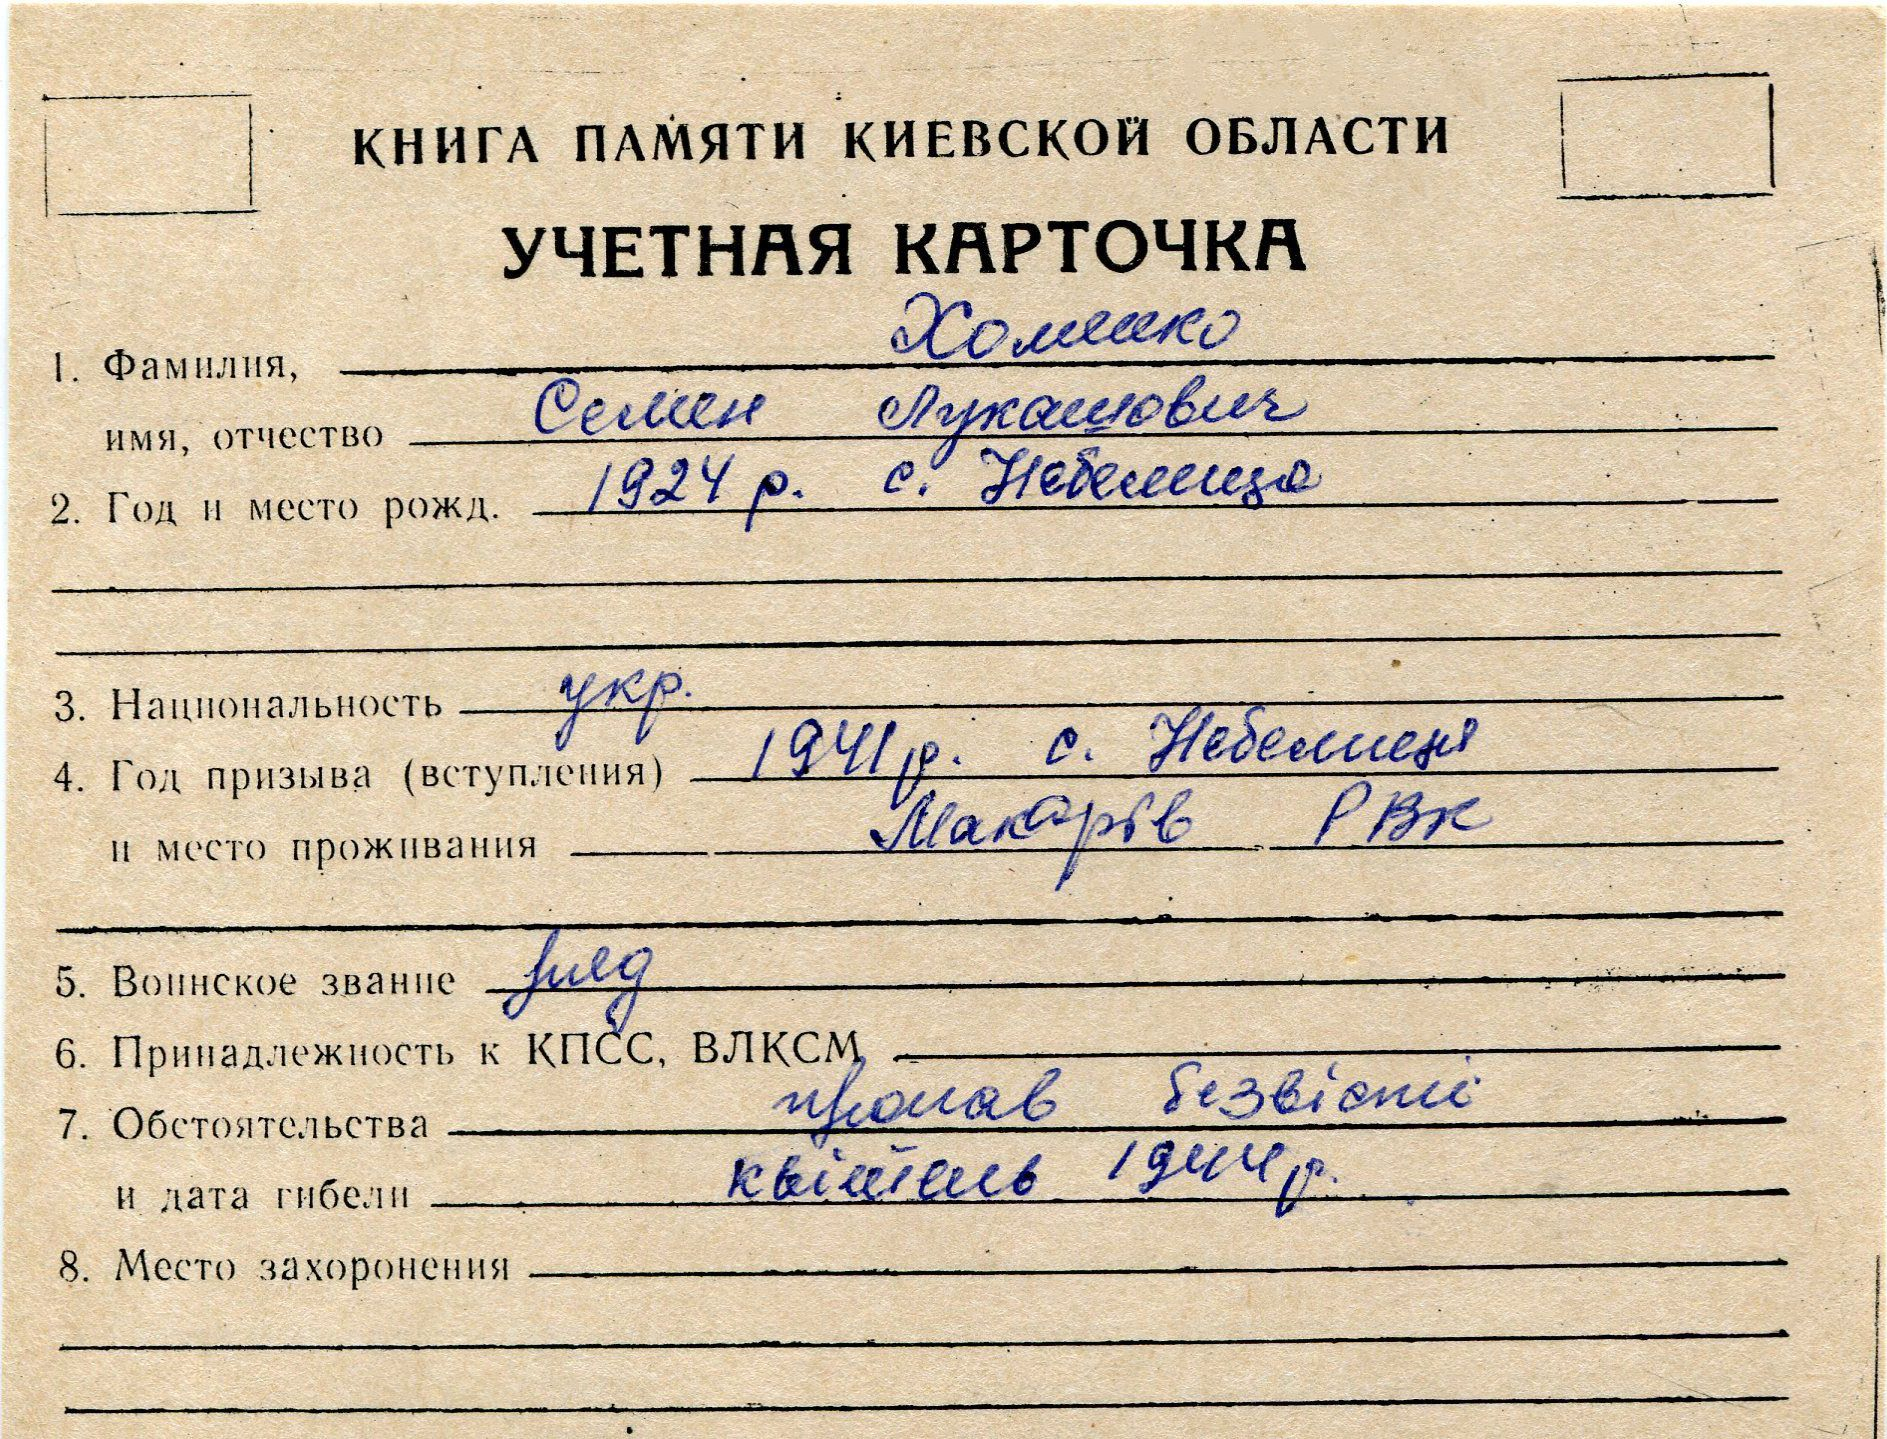 КНИГА ПАМЯТИ КИЕВСКОЙ ОБЛАСТИ
УЧЕТНАЯ КАРТОЧКА
1. Фамилия, Хоменко
имя, отчество Семен Лукашович
2. Год и место рожд. 1924 р. с. Небелиця
3. Национальность укр.
4. Год призыва (вступления) 1941 р. с. Небелиця
и место проживания Макарів РВК
5. Воинское звание
6. Принадлежность к КПСС, ВЛКСМ
7. Обстоятельства пропав безвісті
и дата гибели квітень 1944 р.
8. Место захоронения